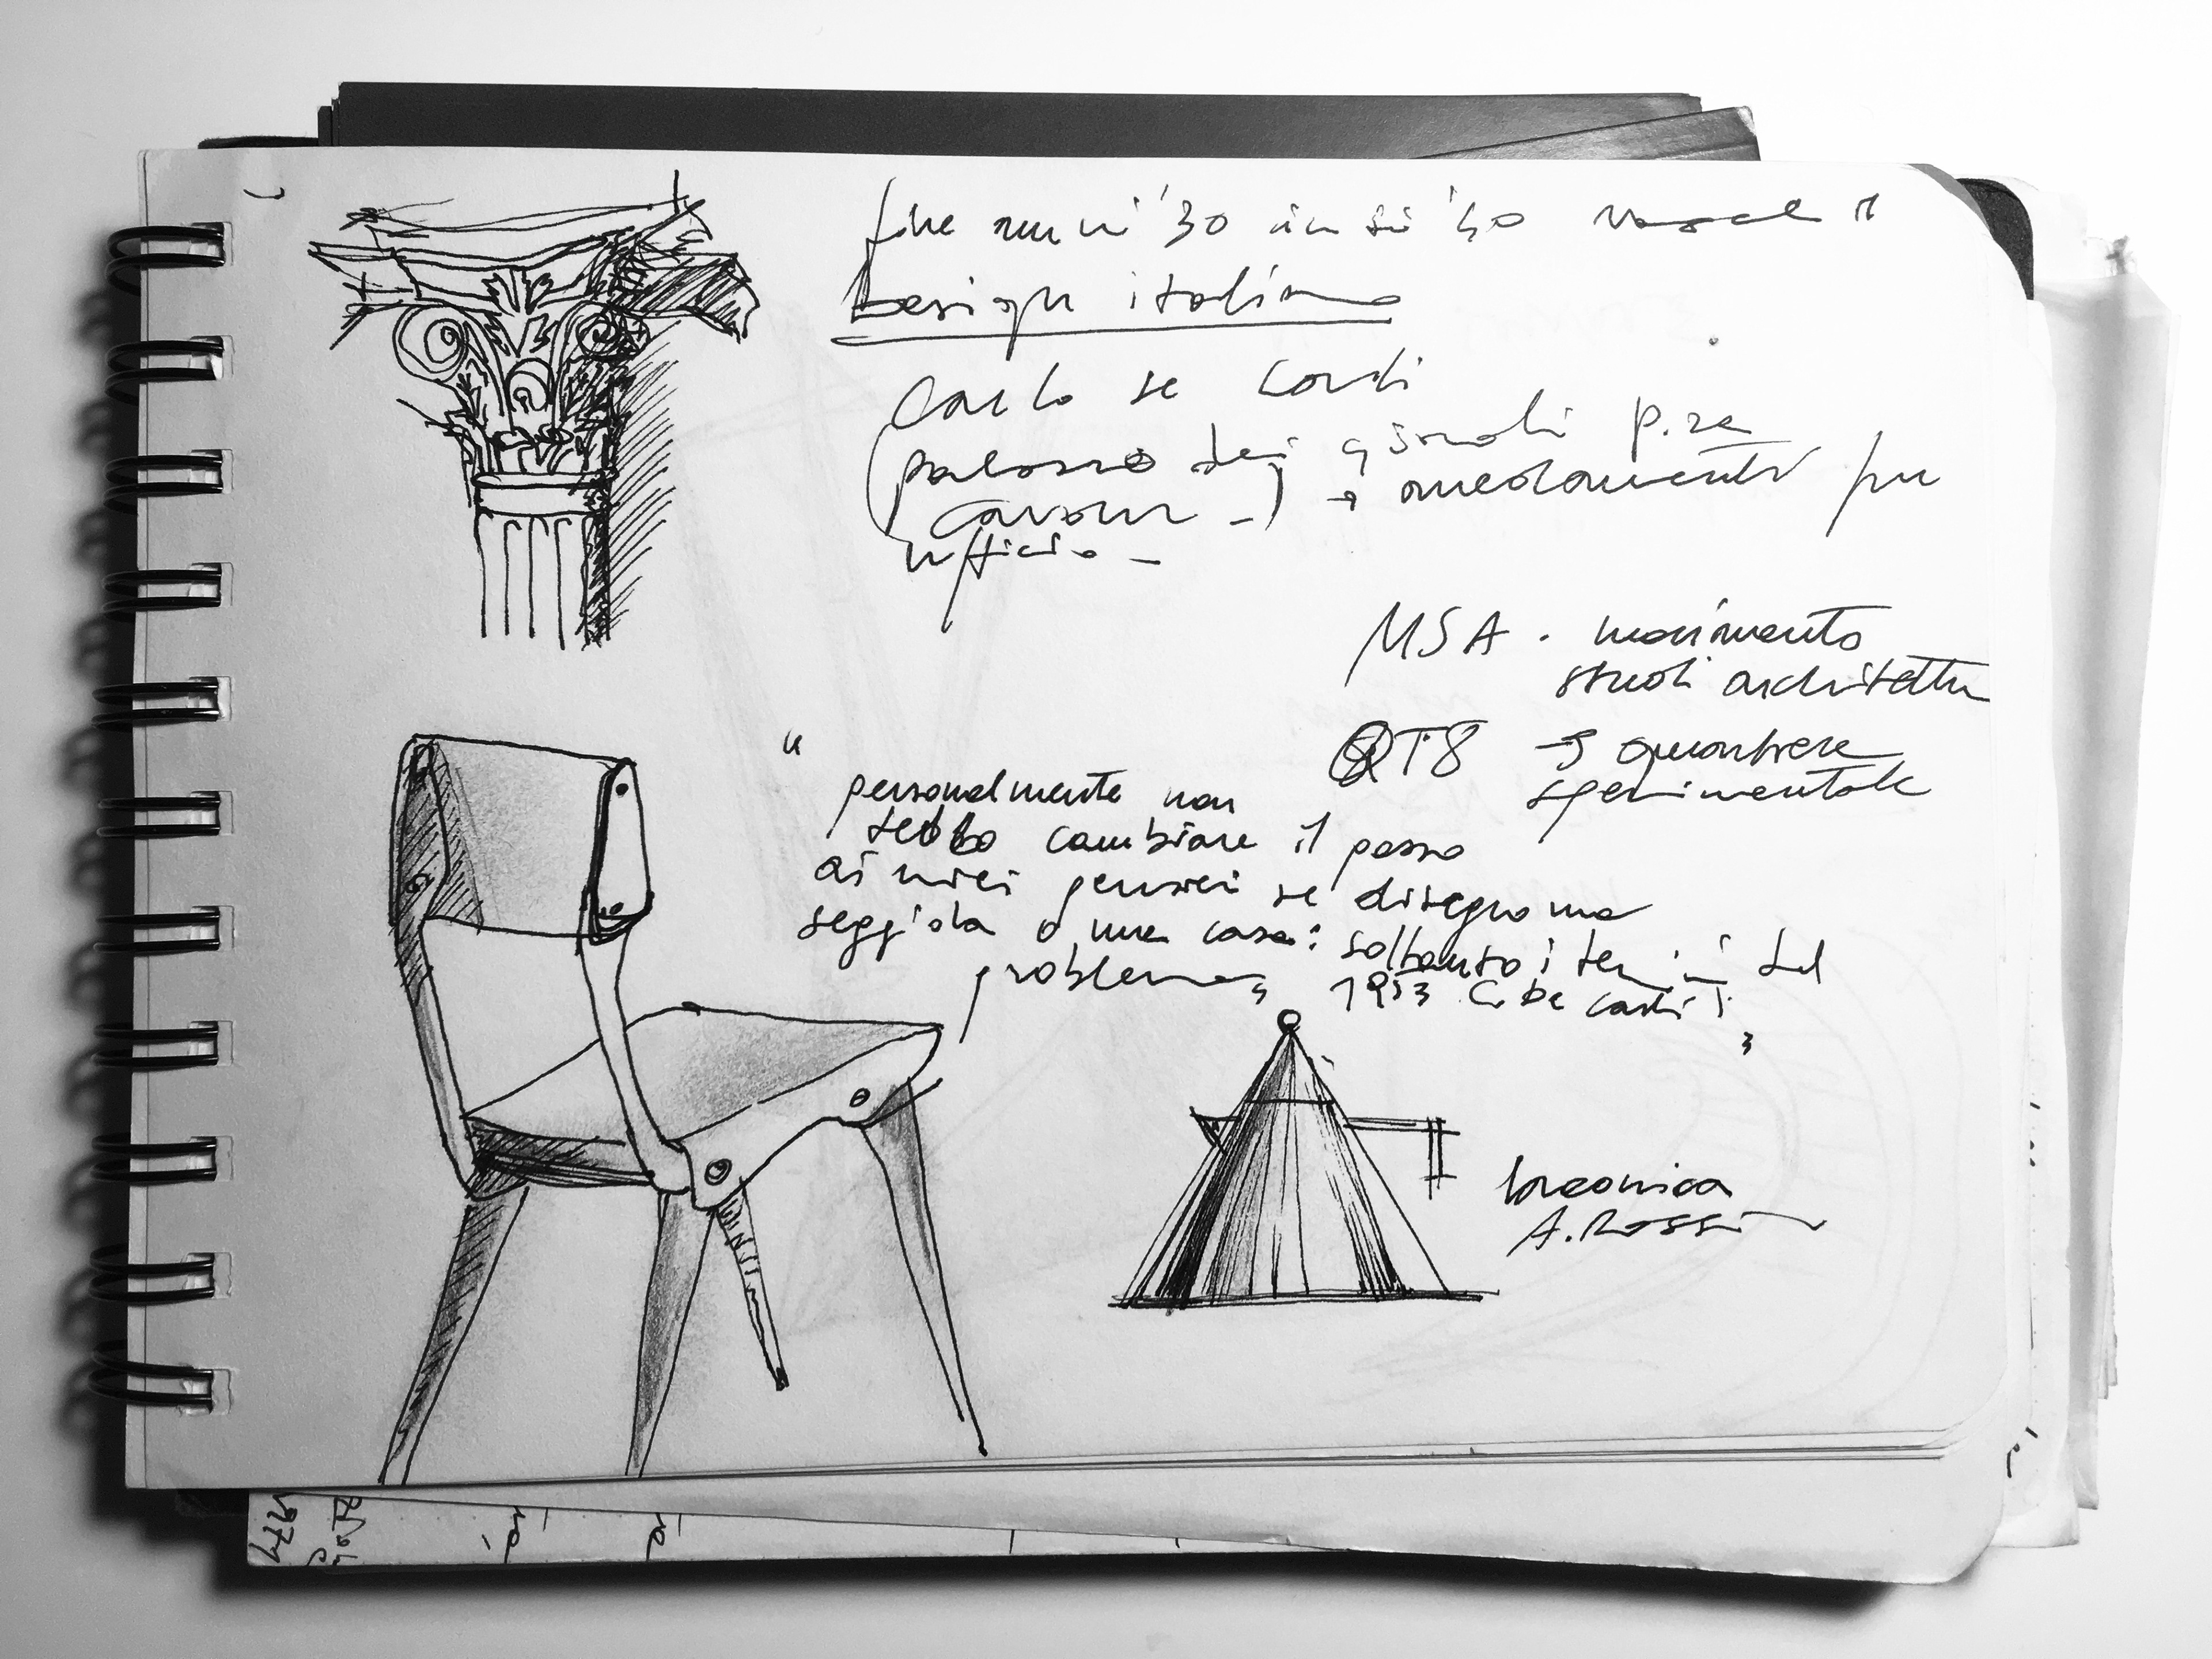 fine anni '30 inizi '40 nasce il
Design italiano
Carlo De Carli
(palazzo dei giornali p.za
Cavour -) → arredamenti per
ufficio -
MSA - movimento
studi architettu
QT8 → quartiere
sperimentale
"
personalmente non
debbo cambiare il passo
ai miei pensieri se disegno una
seggiola o una casa: soltanto i termini del
problema, 1953 C. De Carli
"
la conica
A. Rossi